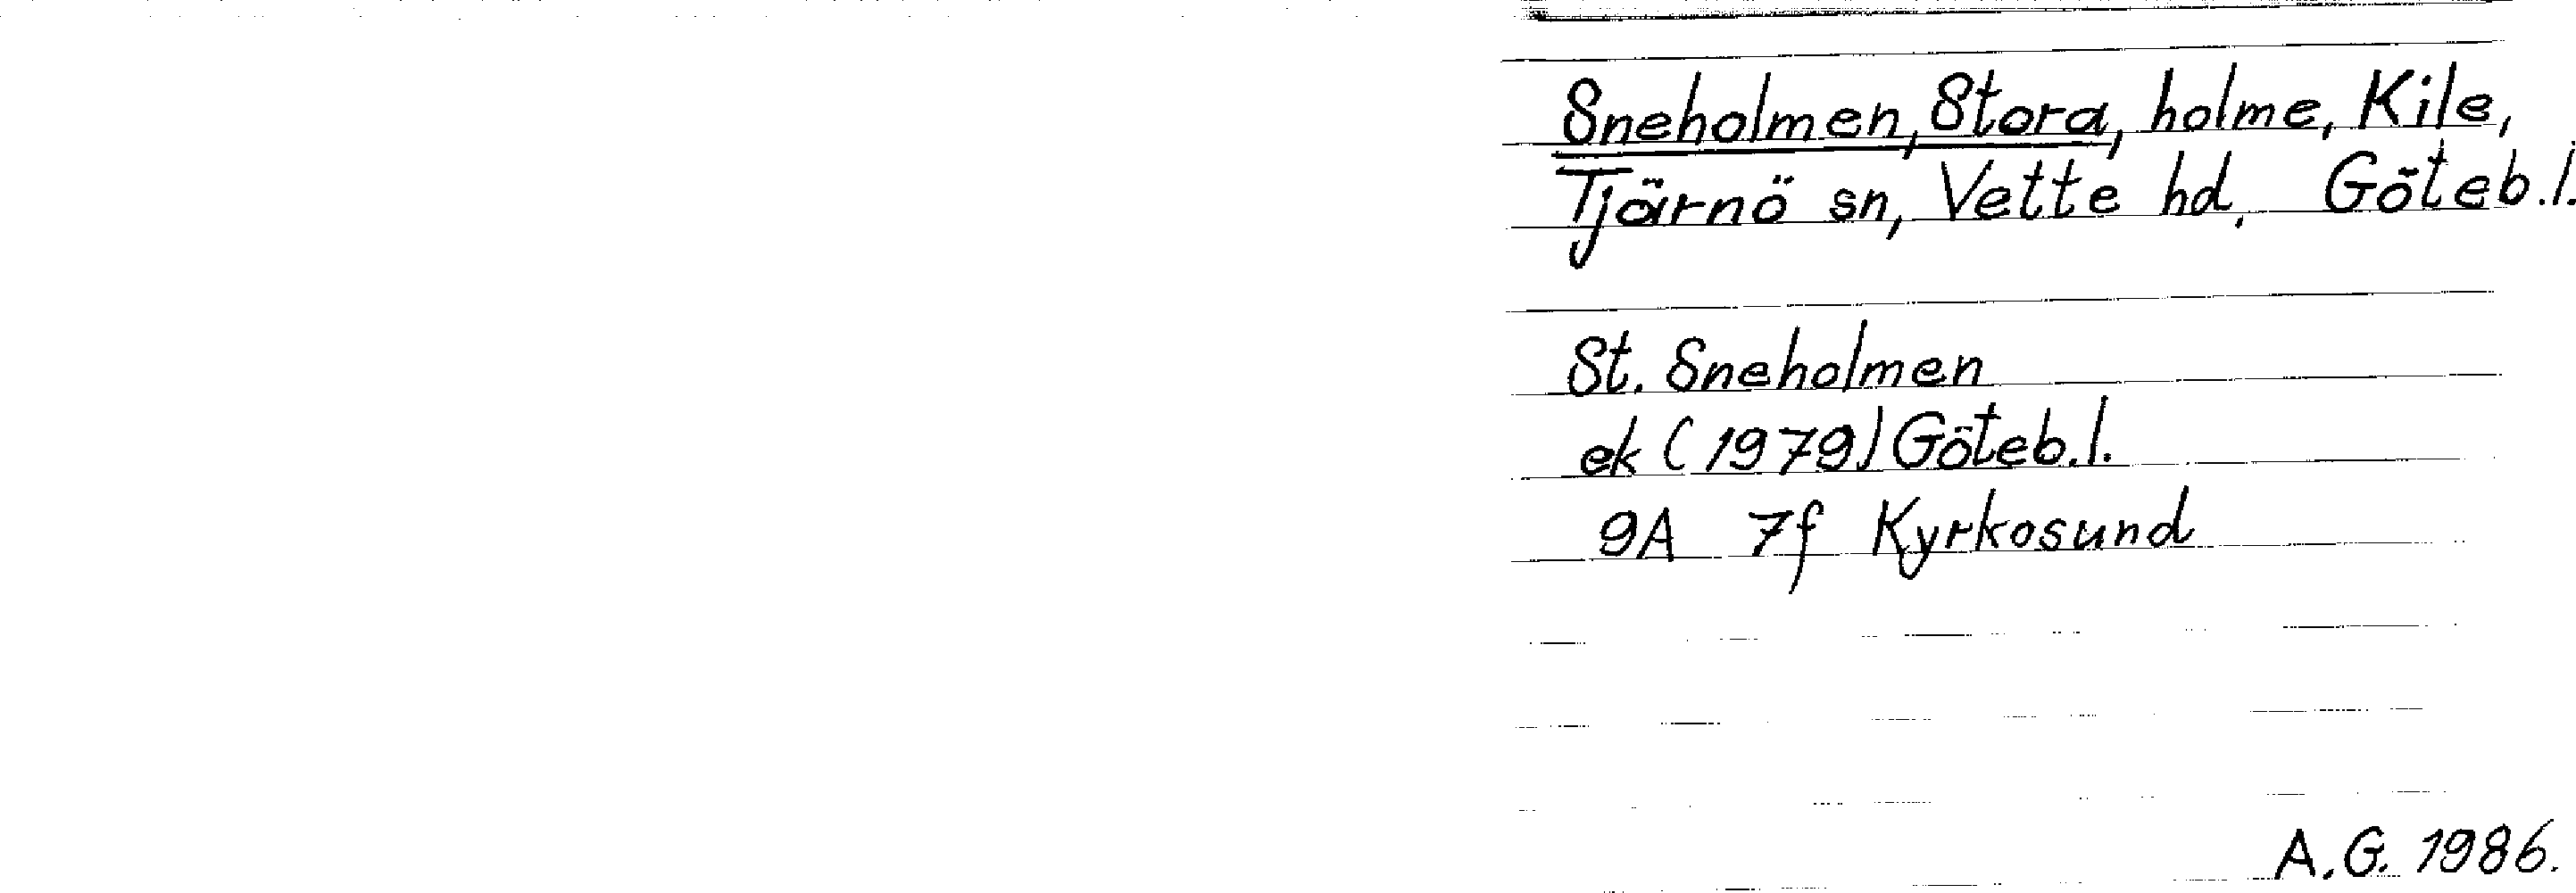 Sneholmen, Stora, holme, Kile,
Tjärnö sn, Vette hd. Göteb.l.
St. Sneholmen
ek (1979) Göteb.l.
9A 7f Kyrkosund
A.G. 1986.